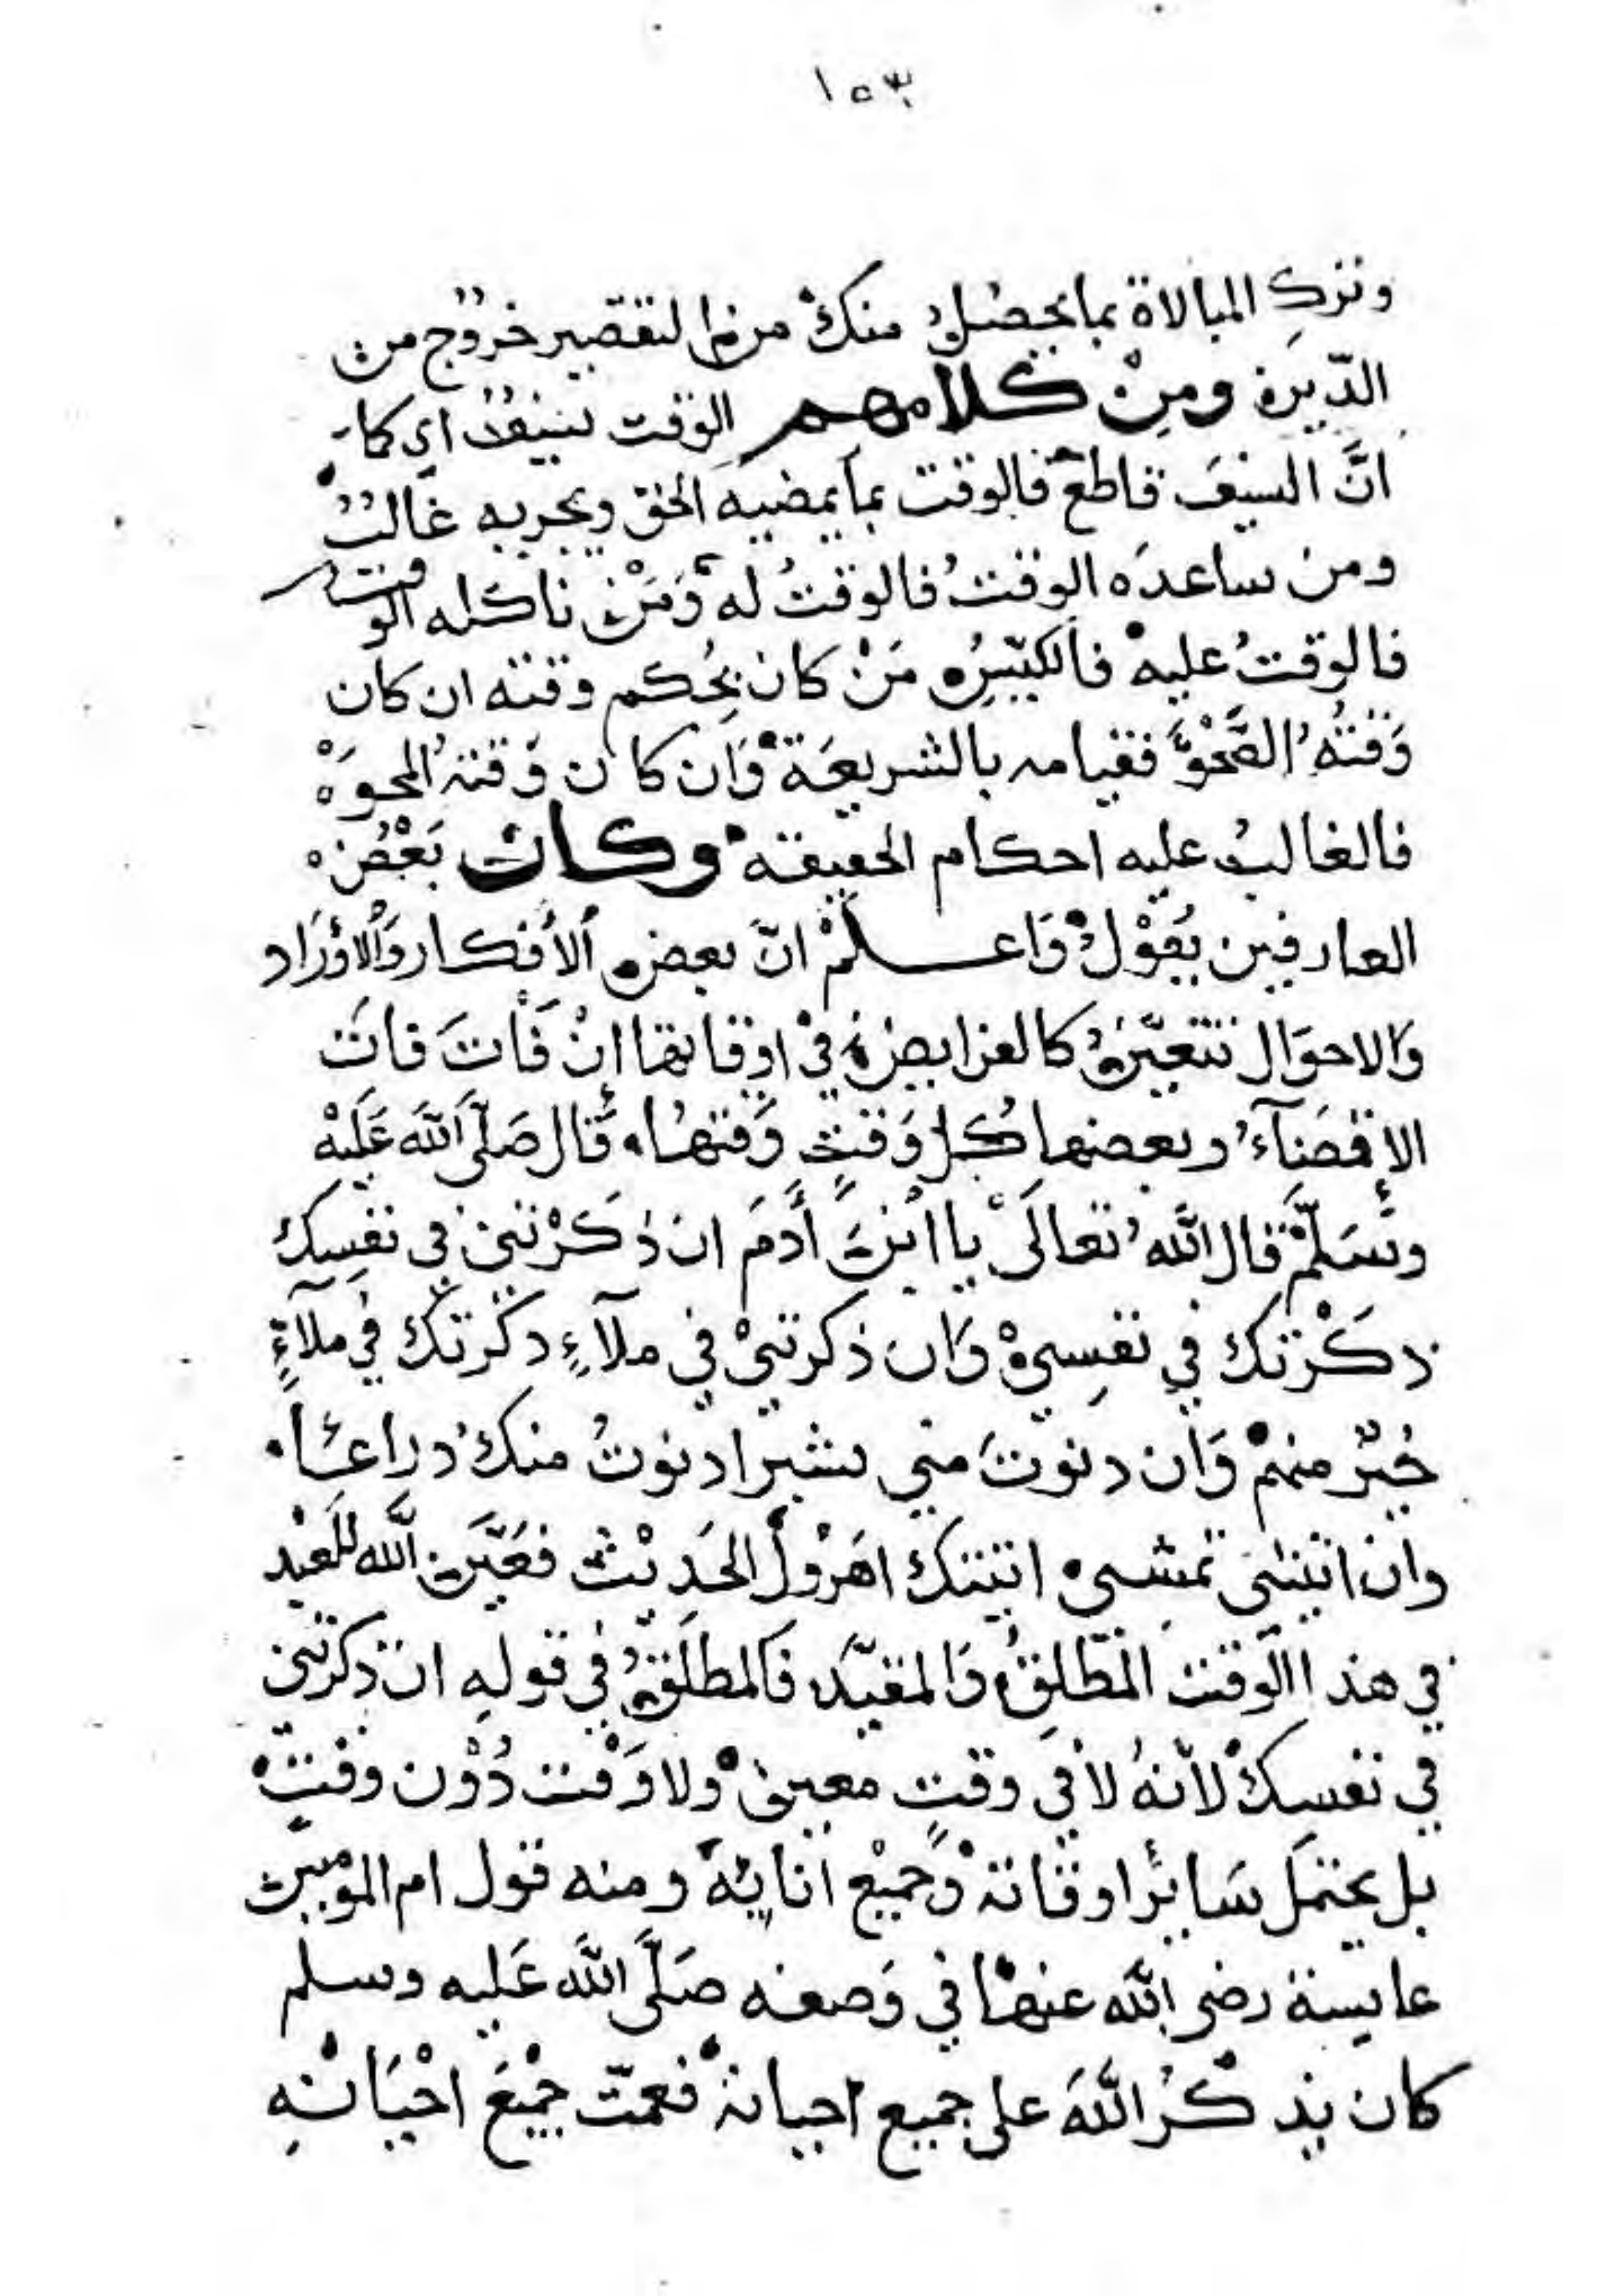 ١٥٣
وترك المبالاة بما يحصل منك من التقصير خروج من
الدين ومن كلامهم الوقت سيف اي كما
ان السيف قاطع فالوقت بما يمضيه الحق ويجريه غالب
ومن ساعده الوقت فالوقت له ومن ناكده الوقت
فالوقت عليه فالكيس من كان بحكم وقته ان كان
وقته الصحو فقيامه بالشريعة وان كان وقته المحو
فالغالب عليه احكام الحقيقة وكان بعض
العارفين يقول واعلم ان بعض الافكار والاوراد
والاحوال تتعين كالفرايض في اوقاتها إن فات فات
الإقضآء وبعضها كل وقت وقتها قال صلى الله عليه
وسلم قال الله تعالى يا ابن أدم ان ذكرتني في نفسك
ذكرتك في نفسي وان ذكرتني في ملآء ذكرتك في ملآء
خير منهم وان دنوت مني شبرا دنوت منك دراعا
وان اتيتني تمشي اتيتك اهرول الحديث فعين الله للعبد
في هذا الوقت المطلق والمقيد فالمطلق في قوله ان ذكرتني
في نفسك لأنه لا في وقت معين ولا وقت دون وقت
بل يحتمل سائر اوقاته وجميع انايه ومنه قول ام المومنين
عايشة رضي الله عنها في وصفه صلى الله عليه وسلم
كان يذكر الله على جميع احيانه فعمت جميع احيانه